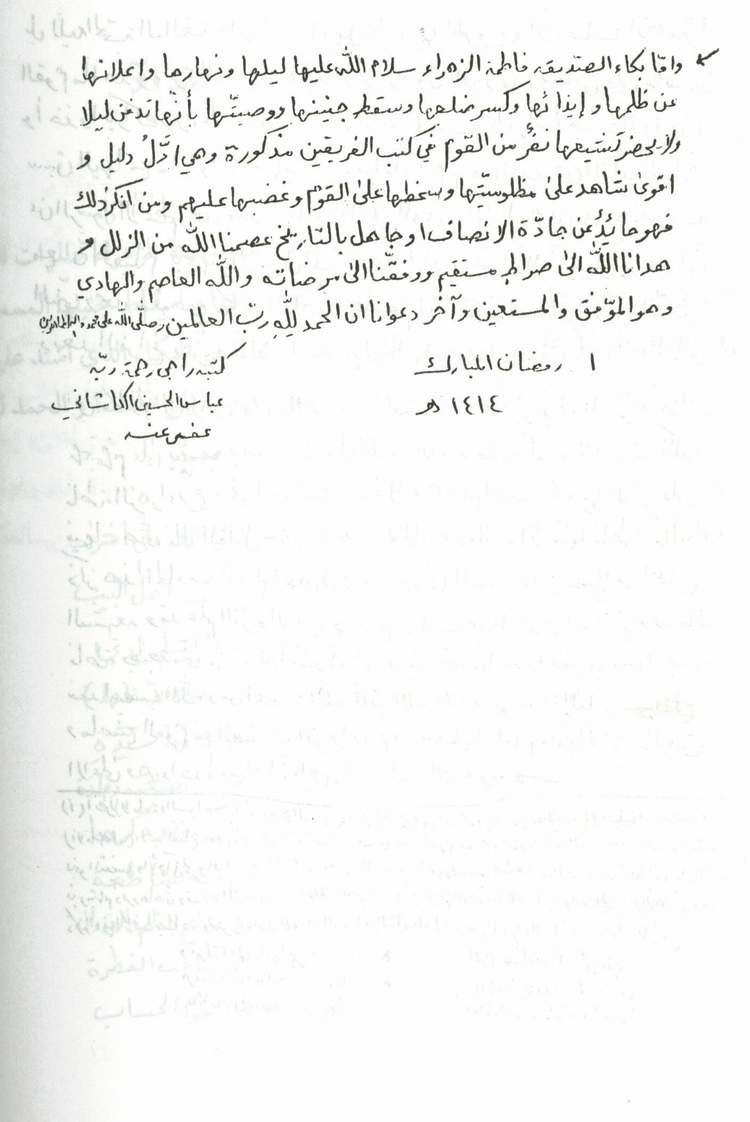 وامّا بكاء الصديقه فاطمة الزهراء سلام اللّه عليها ليلها ونهارها واعلانها
عن ظلمها وإيذائها وكسر ضلعها وسقط جنينها ووصيّتها بأنّها تدفن ليلا
ولا يحضر تشييعها نفرٌ من القوم في كتب الفريقين مذكورة وهي ادّلُ دليل و
اقوىٰ شاهد علىٰ مظلوميّتها وسخطها على القوم وغضبها عليهم ومن انكر ذلك
فهو حائدٌ عن جادّة الانصاف او جاهل بالتاريخ عصمنا اللّه من الزلل و
هدانا اللّه الىٰ صراط مستقيم ووفقّنا الىٰ مرضاته واللّه العاصم والهادي
وهو الموّفق والمستعين وآخر دعوانا ان الحمد للّٰه ربّ العالمين وصلى اللّه على محمد وآله
١ رمضان المبارك
١٤١٤ هـ
كتبه راجي رحمة ربّه
عباس الحسيني الكاشاني
عفي عنه